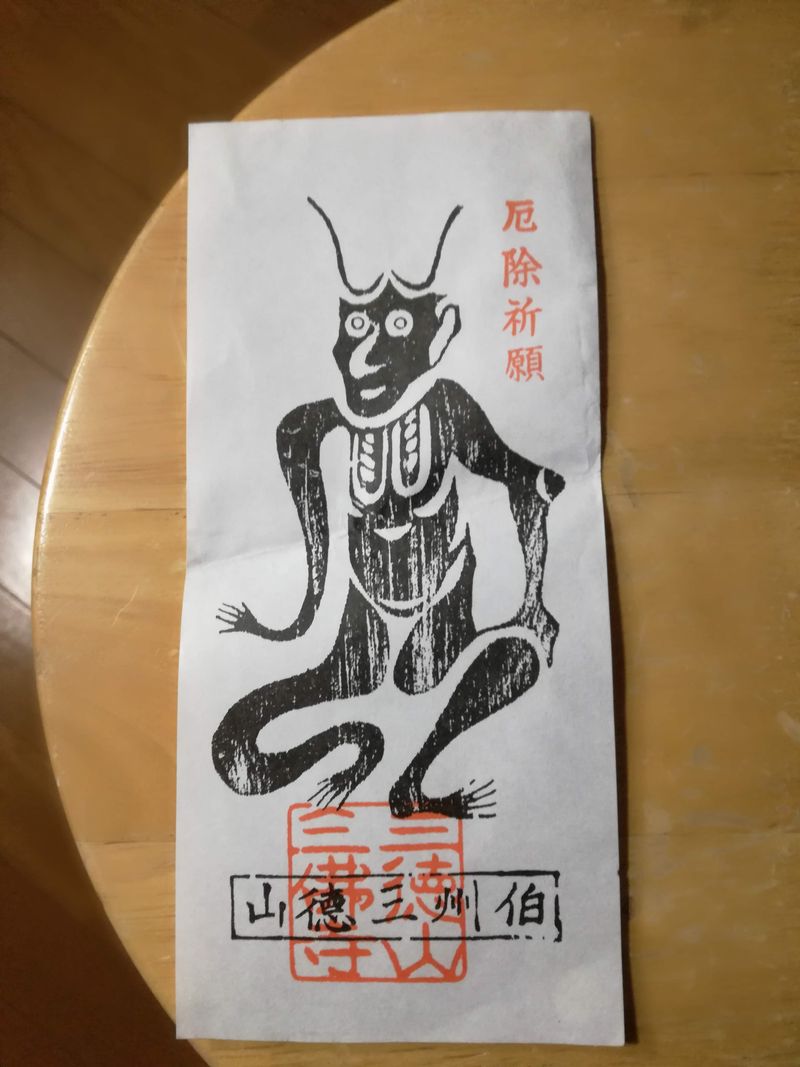 厄除祈願
三徳山
三佛寺
伯州三德山